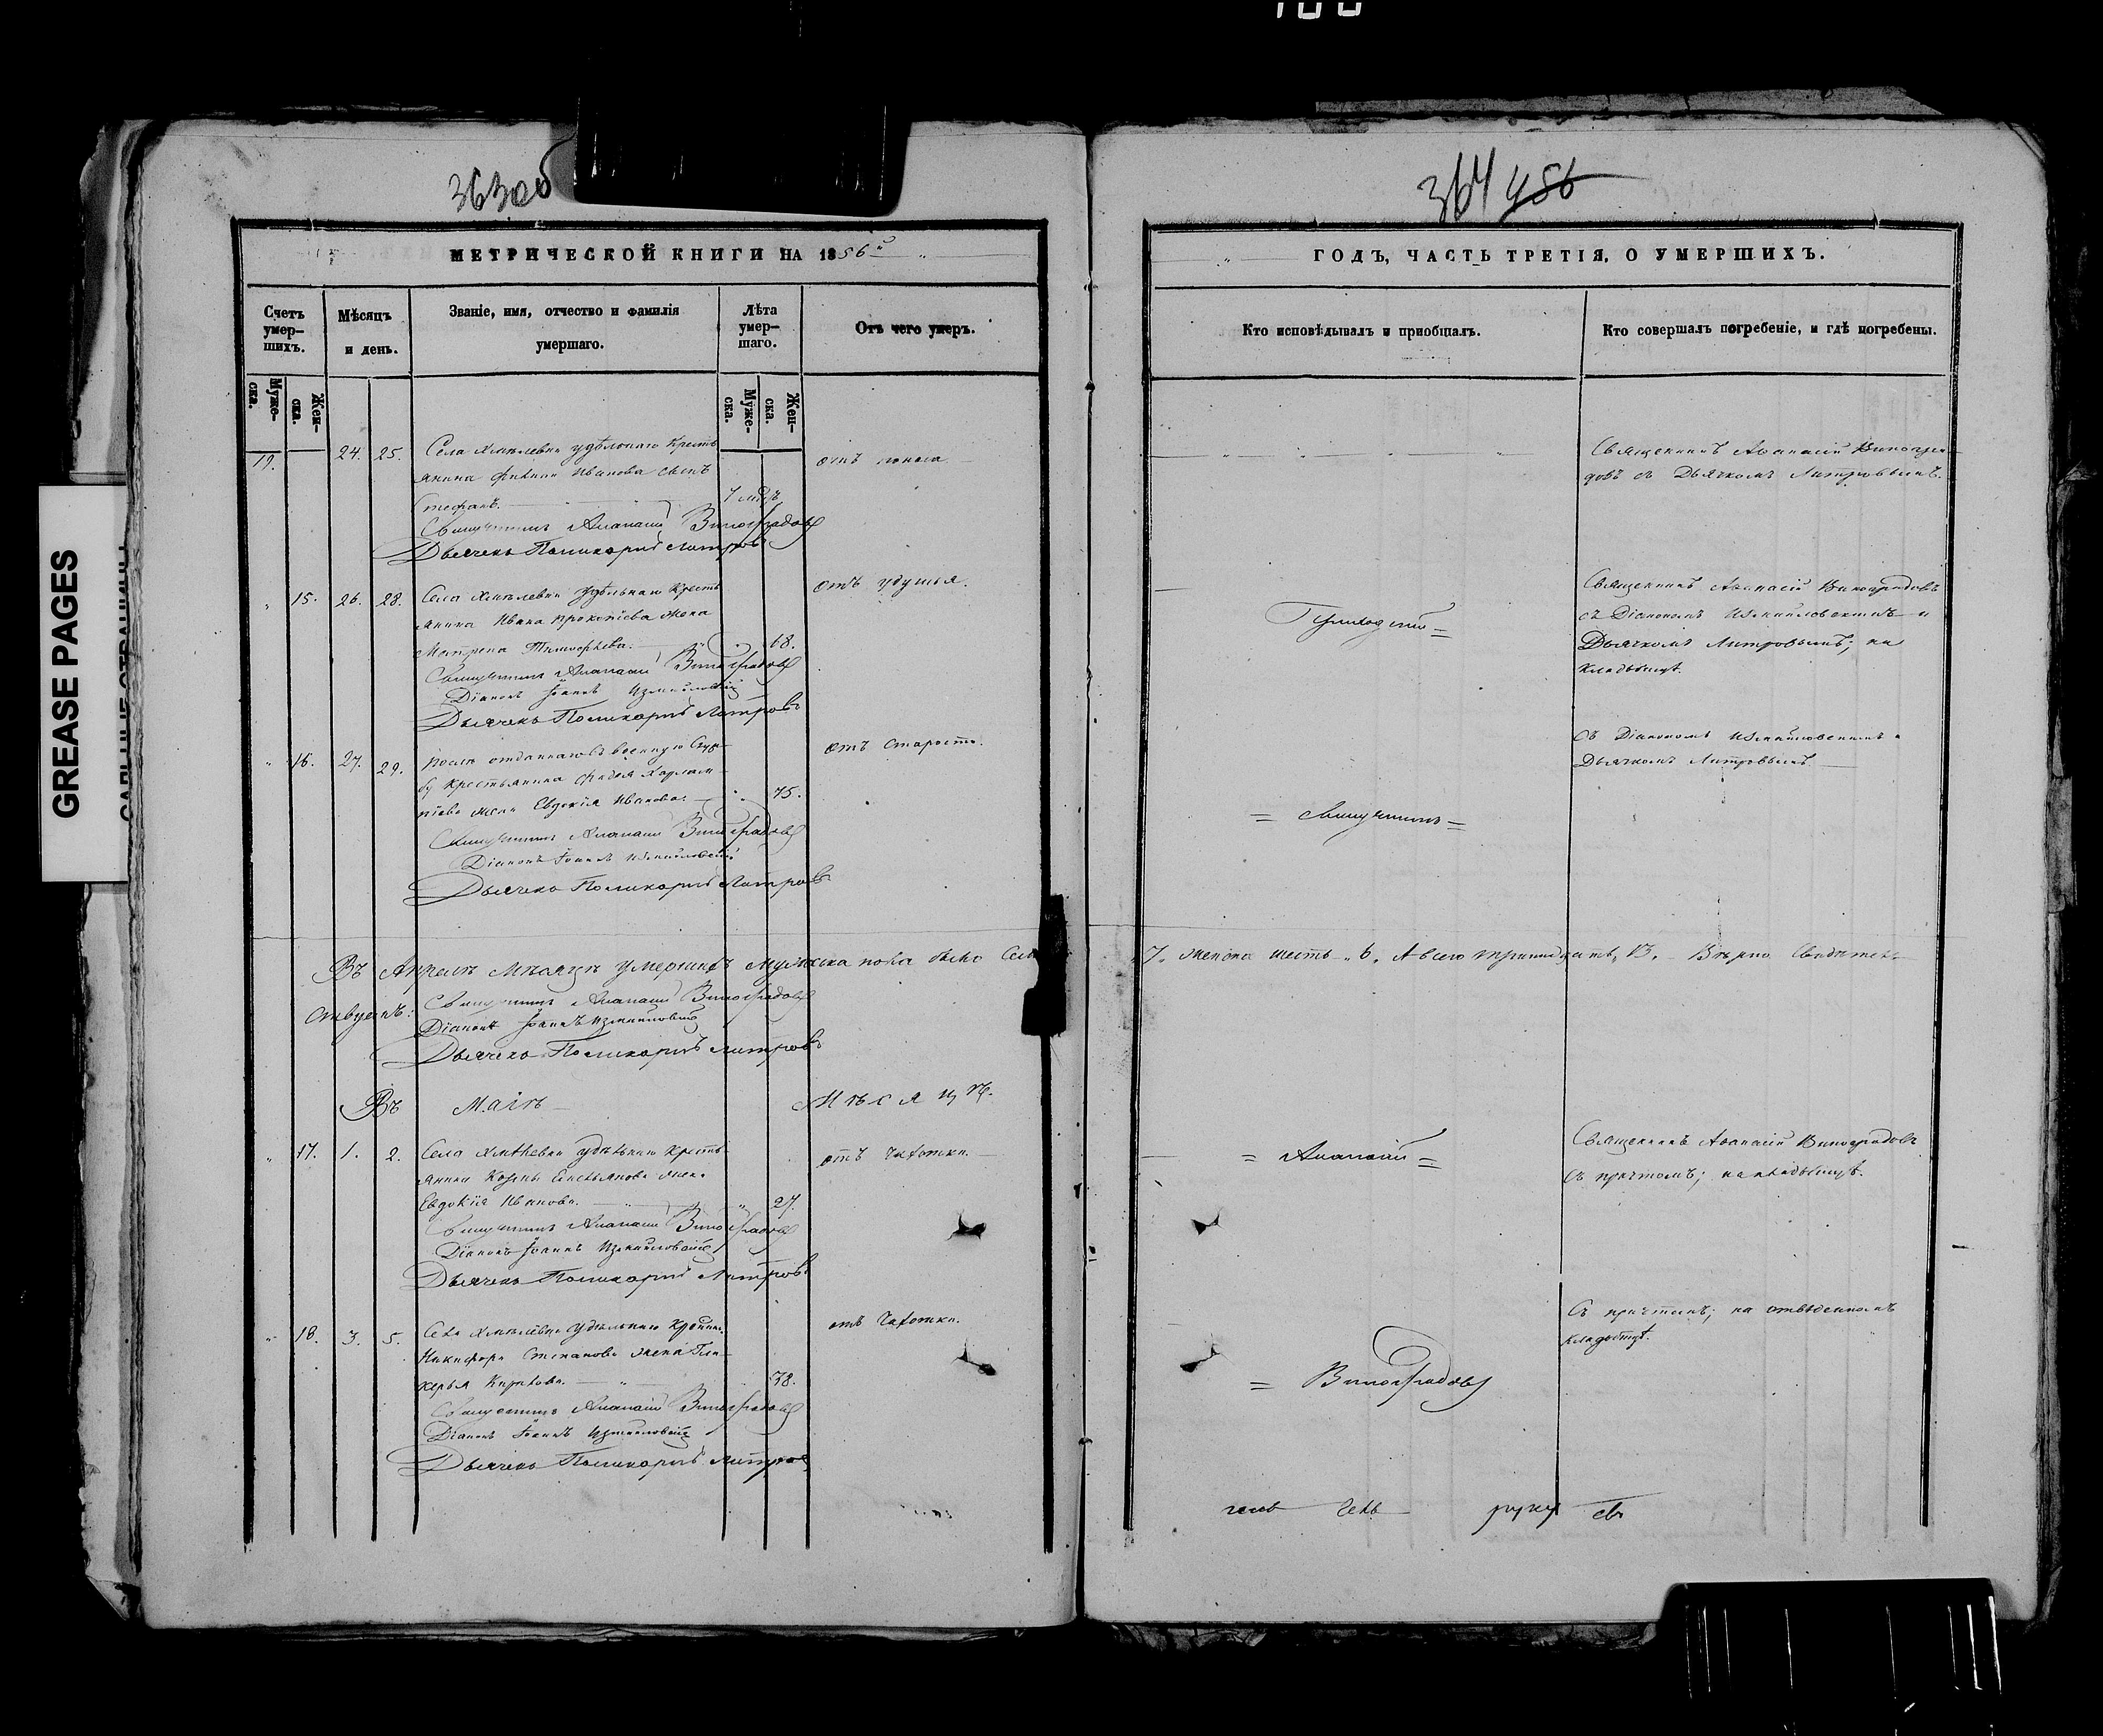 100
363об
364 456
GREASE PAGES
МЕТРИЧЕСКОЙ КНИГИ НА 1856й
Счетъ умер-
шихъ.
Мѣсяцъ
и день.
Званіе, имя, отчество и фамилія
умершаго.
Лѣта
умер-
шаго.
Отъ чего умеръ.
Муже-
ска.
Жен-
ска.
Муже-
ска.
Жен-
ска.
19. 24. 25. Села Хмѣлевки удѣльнаго кресть
янина Иванова сынъ
Стефанъ.
отъ поноса
Священникъ Аѳанасій Виноградовъ
Дьячекъ Поликарпъ Литровъ
15. 26. 28. Села Хмѣлевки удѣльнаго кресть
янина Ивана Прокопіева жена
Матрена Тимофѣева. 68.
отъ удушья.
Священникъ Аѳанасій Виноградовъ
Діаконъ Іоаннъ Измайловскій
Дьячекъ Поликарпъ Литровъ
16. 27. 29. отданнаго въ военную служ-
бу крестьянина Харлам-
піева жена Евдокія Иванова. 75.
отъ старости.
Священникъ Аѳанасій Виноградовъ
Діаконъ Іоаннъ Измайловскій
Дьячекъ Поликарпъ Литровъ
Въ Апрѣлѣ мѣсяцѣ умершихъ мужеска пола было семь
Священникъ Аѳанасій Виноградовъ
Діаконъ Іоаннъ Измайловскій
Дьячекъ Поликарпъ Литровъ
Въ Маіѣ Мѣсяцѣ.
17. 1. 2. Села Хмѣлевки удѣльнаго кресть-
янина Козмы жена
Евдокія Иванова. 27.
отъ чахотки.
Священникъ Аѳанасій Виноградовъ
Діаконъ Іоаннъ Измайловскій
Дьячекъ Поликарпъ Литровъ
18. 3. 5. Села Хмѣлевки удѣльнаго
Никифора Степанова жена Гли-
керья Кирилова. 78.
отъ чахотки.
Священникъ Аѳанасій Виноградовъ
Діаконъ Іоаннъ Измайловскій
Дьячекъ Поликарпъ Литровъ
ГОДЪ, ЧАСТЬ ТРЕТІЯ, О УМЕРШИХЪ.
Кто исповѣдывалъ и пріобщалъ.
Кто совершалъ погребеніе, и гдѣ погребены.
Священникъ Аѳанасій Виногра-
довъ съ Дьячкомъ Литровымъ.
Приходскій
Священникъ Аѳанасій Виноградовъ
съ Діакономъ Измайловскимъ и
Дьячкомъ Литровымъ; на
кладбищѣ.
съ Діакономъ Измайловскимъ и
Дьячкомъ Литровымъ.
= священникъ =
7. женска шесть 6. А всего тринадцать, 13. Вѣрно
= Аѳанасій =
Священникъ Аѳанасій Виноградовъ
съ причтомъ; на кладбищѣ.
= Виноградовъ
Съ причтомъ; на отведенномъ
кладбищѣ.
руку